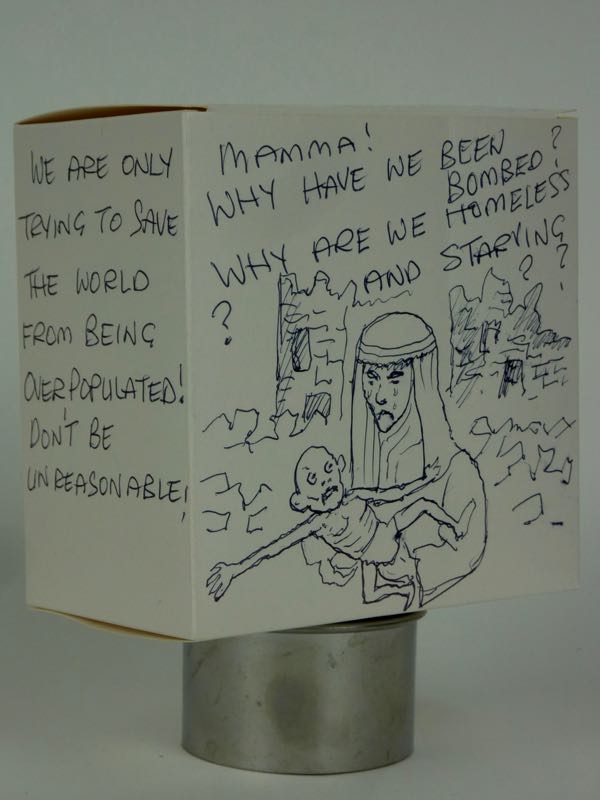 WE ARE ONLY
TRYING TO SAVE
THE WORLD
FROM BEING
OVERPOPULATED!
DON'T BE
UNREASONABLE!
MAMMA!
WHY HAVE WE BEEN
BOMBED?
WHY ARE WE HOMELESS
AND STARVING
? ? ?